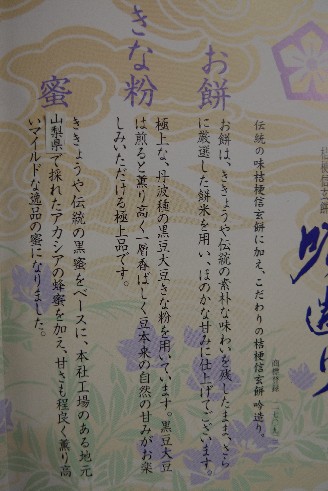 吟造り
伝統の味桔梗信玄餅に加え、こだわりの桔梗信玄餅 吟造り。
商標登録
お餅
お餅は、ききょうや伝統の素朴な味わいを残したまま、さら
に厳選した餅米を用い、ほのかな甘みに仕上げてございます。
きな粉
極上な、丹波穂の黒豆大豆きな粉を用いています。黒豆大豆
は煎ると薫り高く一層香ばしく豆本来の自然の甘みがお楽
しみいただける極上品です。
蜜
ききょうや伝統の黒蜜をベースに、本社工場のある地元
山梨県で採れたアカシアの蜂蜜を加え、甘さも程良く薫り高
いマイルドな逸品の蜜になりました。